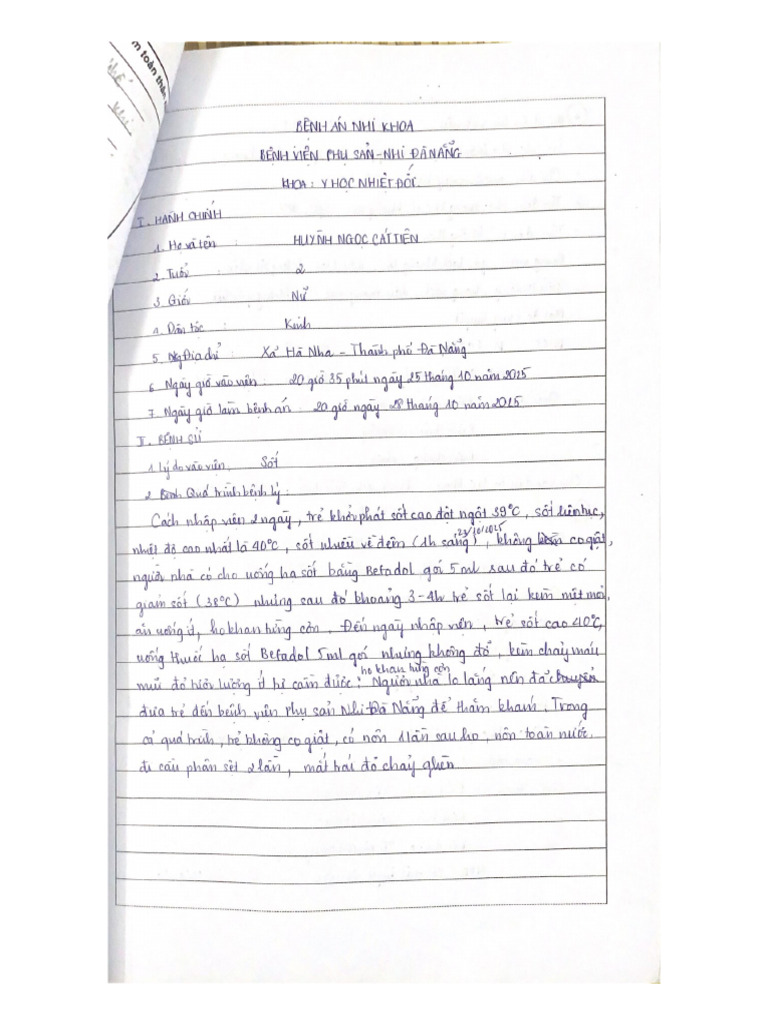 m toàn thân
BỆNH ÁN NHI KHOA
BỆNH VIỆN PHỤ SẢN - NHI ĐÀ NẴNG
KHOA: Y HỌC NHIỆT ĐỚI
I. HÀNH CHÍNH
1. Họ và tên : HUỲNH NGỌC CÁT TIÊN
2. Tuổi : 2
3. Giới : Nữ
4. Dân tộc : Kinh
5. Địa chỉ : Xã Hà Nha - Thành phố Đà Nẵng
6. Ngày giờ vào viện : 20 giờ 35 phút ngày 25 tháng 10 năm 2025
7. Ngày giờ làm bệnh án : 20 giờ ngày 28 tháng 10 năm 2025
II. BỆNH SỬ
1. Lý do vào viện: Sốt
2. Quá trình bệnh lý :
Cách nhập viện 2 ngày, trẻ khởi phát sốt cao đột ngột 39°C, sốt liên tục,
23/10/2025
nhiệt độ cao nhất là 40°C, sốt nhiều về đêm (1h sáng), không co giật,
người nhà có cho uống hạ sốt bằng Befadol gói 5ml sau đó trẻ có
giảm sốt (38°C) nhưng sau đó khoảng 3-4h trẻ sốt lại kèm mệt mỏi,
ăn uống ít, ho khan từng cơn. Đến ngày nhập viện, trẻ sốt cao 40°C,
uống thuốc hạ sốt Befadol 5ml gói nhưng không đỡ, kèm chảy máu
ho khan từng cơn
mũi đỏ tươi lượng ít tự cầm được. Người nhà lo lắng nên đã
đưa trẻ đến bệnh viện Phụ sản Nhi Đà Nẵng để thăm khám. Trong
cả quá trình, trẻ không co giật, có nôn 1 lần sau ho, nôn toàn nước.
đi cầu phân sệt 2 lần, mắt trái đỏ chảy ghèn